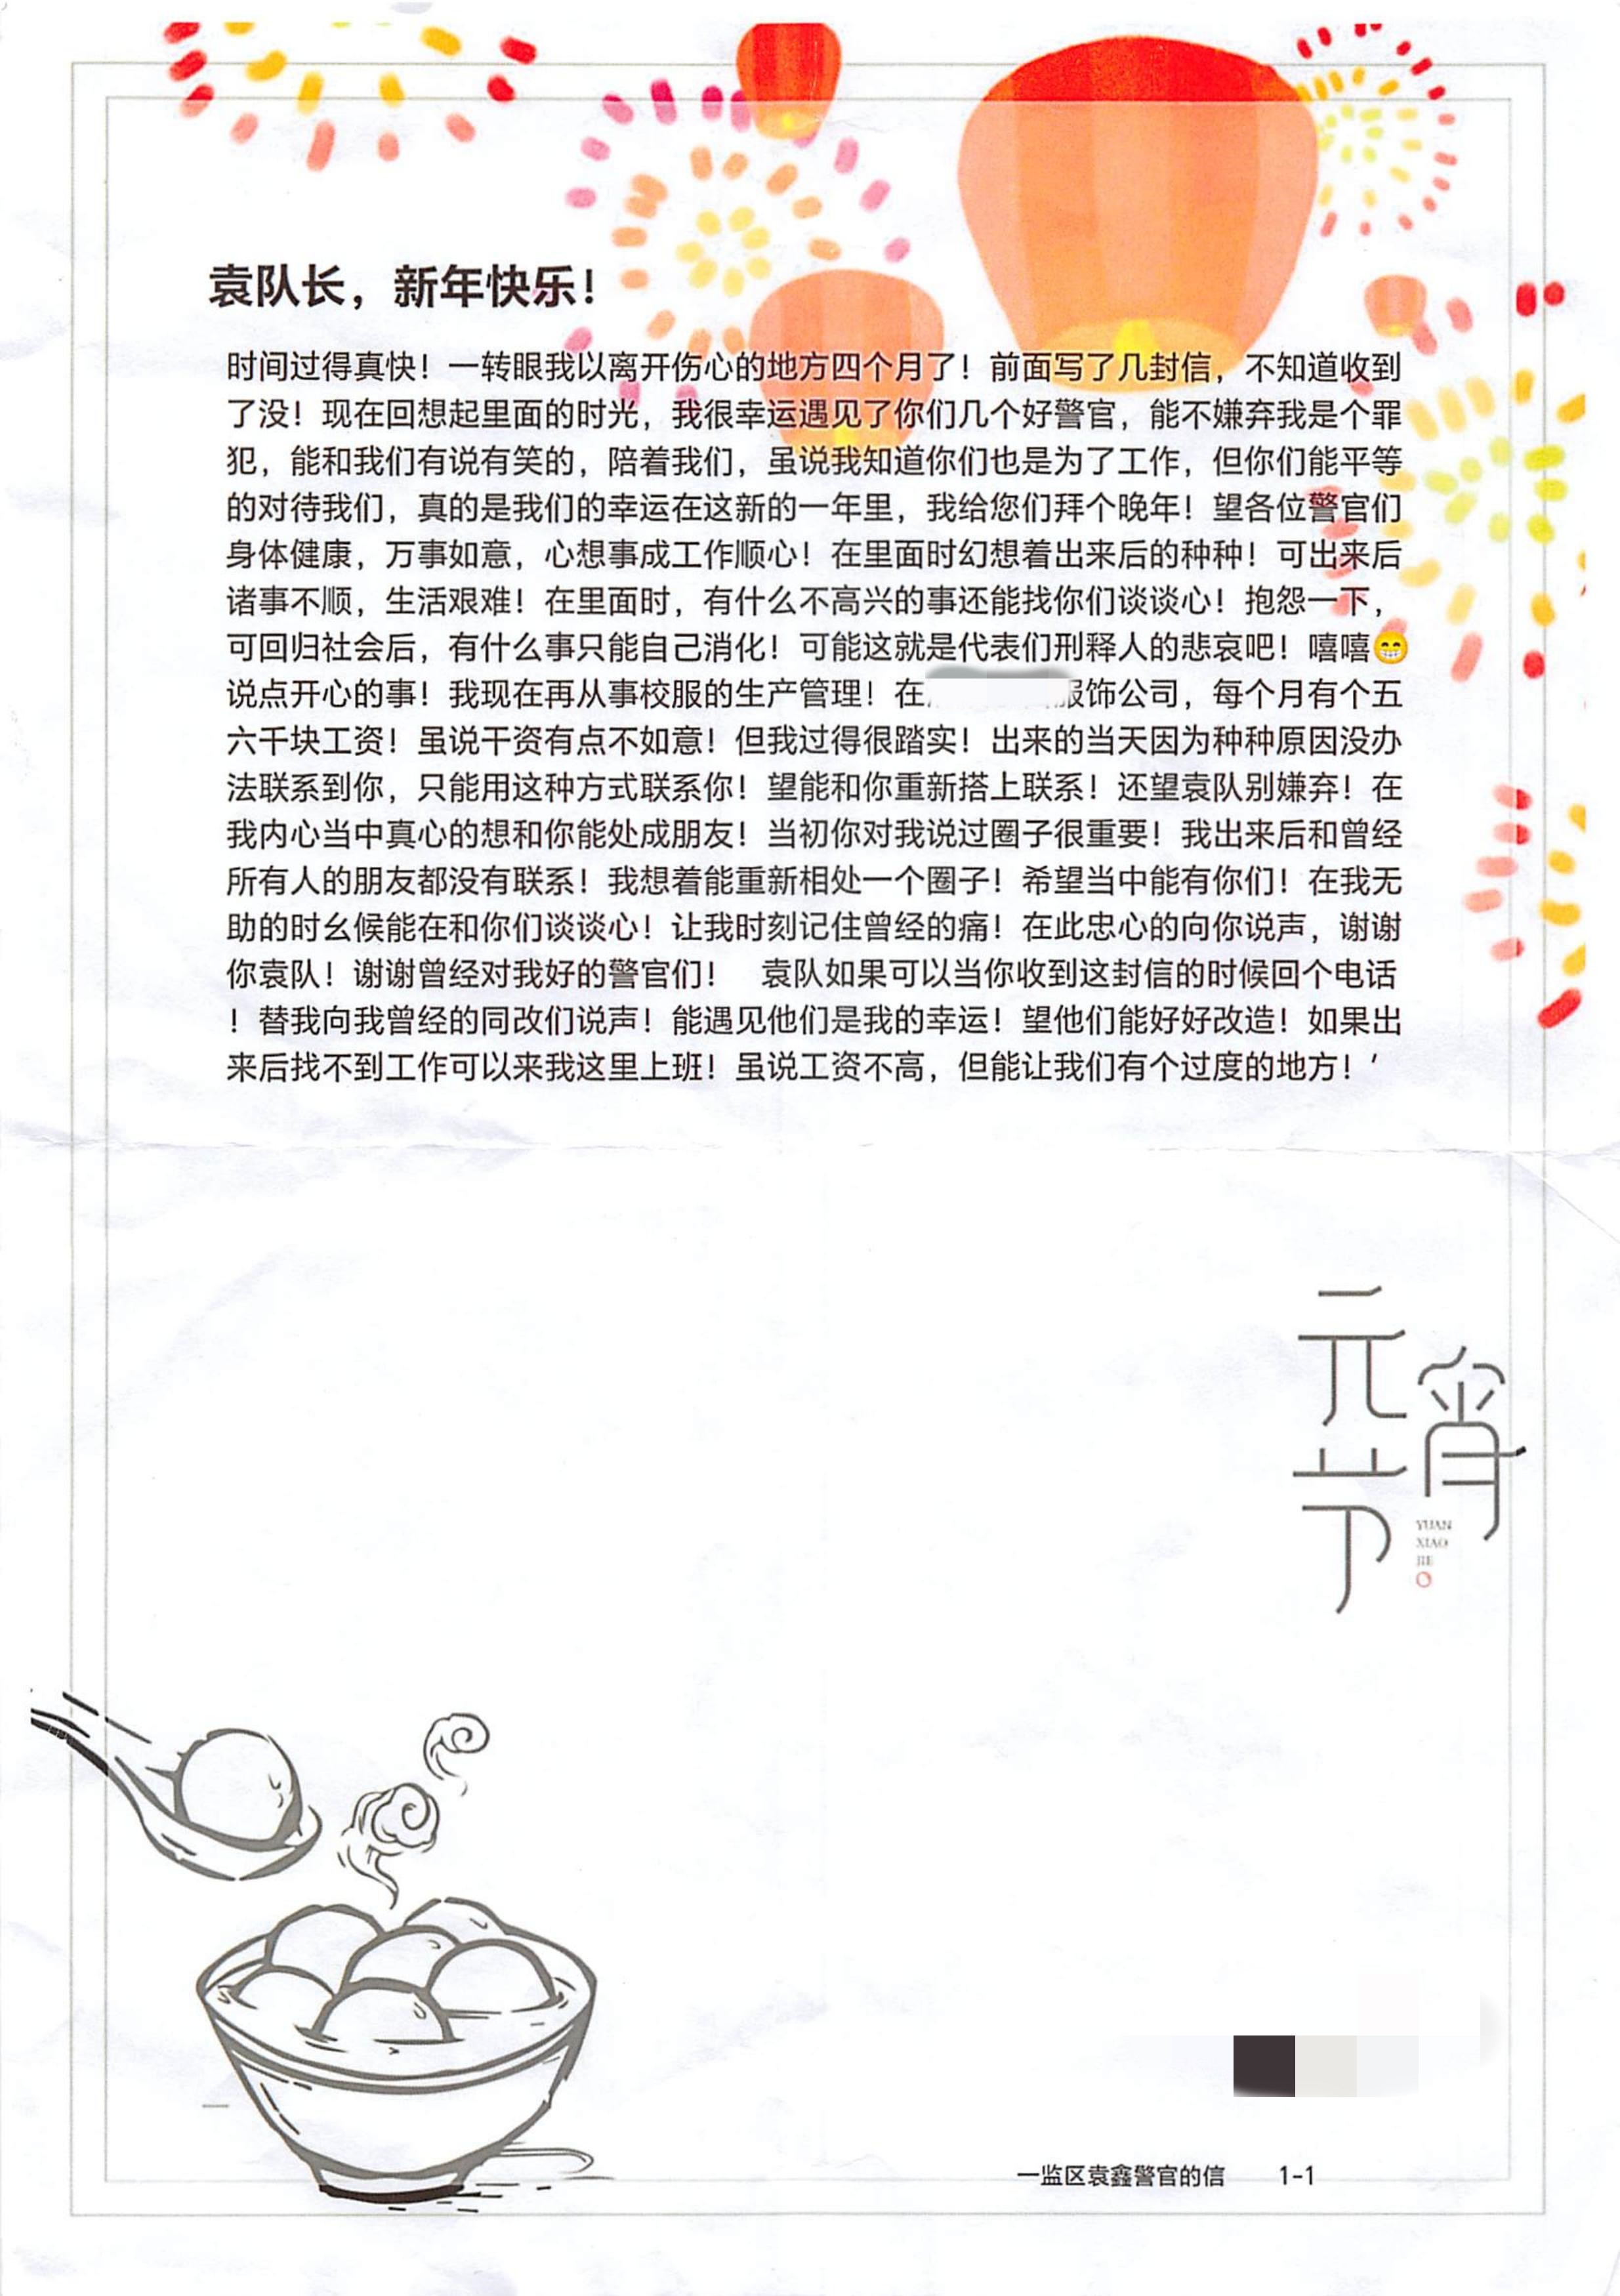 袁队长，新年快乐！
时间过得真快！一转眼我以离开伤心的地方四个月了！前面写了几封信，不知道收到
了没！现在回想起里面的时光，我很幸运遇见了你们几个好警官，能不嫌弃我是个罪
犯，能和我们有说有笑的，陪着我们，虽说我知道你们也是为了工作，但你们能平等
的对待我们，真的是我们的幸运在这新的一年里，我给您们拜个晚年！望各位警官们
身体健康，万事如意，心想事成工作顺心！在里面时幻想着出来后的种种！可出来后
诸事不顺，生活艰难！在里面时，有什么不高兴的事还能找你们谈谈心！抱怨一下，
可回归社会后，有什么事只能自己消化！可能这就是代表们刑释人的悲哀吧！嘻嘻😁
说点开心的事！我现在再从事校服的生产管理！在服饰公司，每个月有个五
六千块工资！虽说干资有点不如意！但我过得很踏实！出来的当天因为种种原因没办
法联系到你，只能用这种方式联系你！望能和你重新搭上联系！还望袁队别嫌弃！在
我内心当中真心的想和你能处成朋友！当初你对我说过圈子很重要！我出来后和曾经
所有人的朋友都没有联系！我想着能重新相处一个圈子！希望当中能有你们！在我无
助的时幺候能在和你们谈谈心！让我时刻记住曾经的痛！在此忠心的向你说声，谢谢
你袁队！谢谢曾经对我好的警官们！ 袁队如果可以当你收到这封信的时候回个电话
！替我向我曾经的同改们说声！能遇见他们是我的幸运！望他们能好好改造！如果出
来后找不到工作可以来我这里上班！虽说工资不高，但能让我们有个过度的地方！′
元宵节
YUAN
XIAO
JIE
一监区袁鑫警官的信 1-1